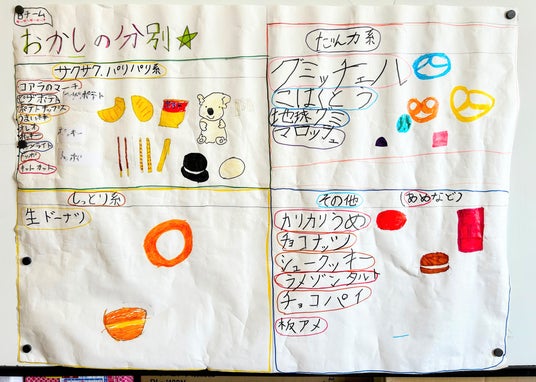 Bチーム
おかしの分別☆
サクサク、パリパリ系
コアラのマーチ
ポテトチップス
うまい棒
しっとり系
生ドーナツ
だんカ系
グミッチェル
こはくとう
地球グミ
マロッシュ
その他 (あめなど)
カリカリうめ
チョコナッツ
シュークッキー
ラメゾンタルト
チョコパイ
板アメ